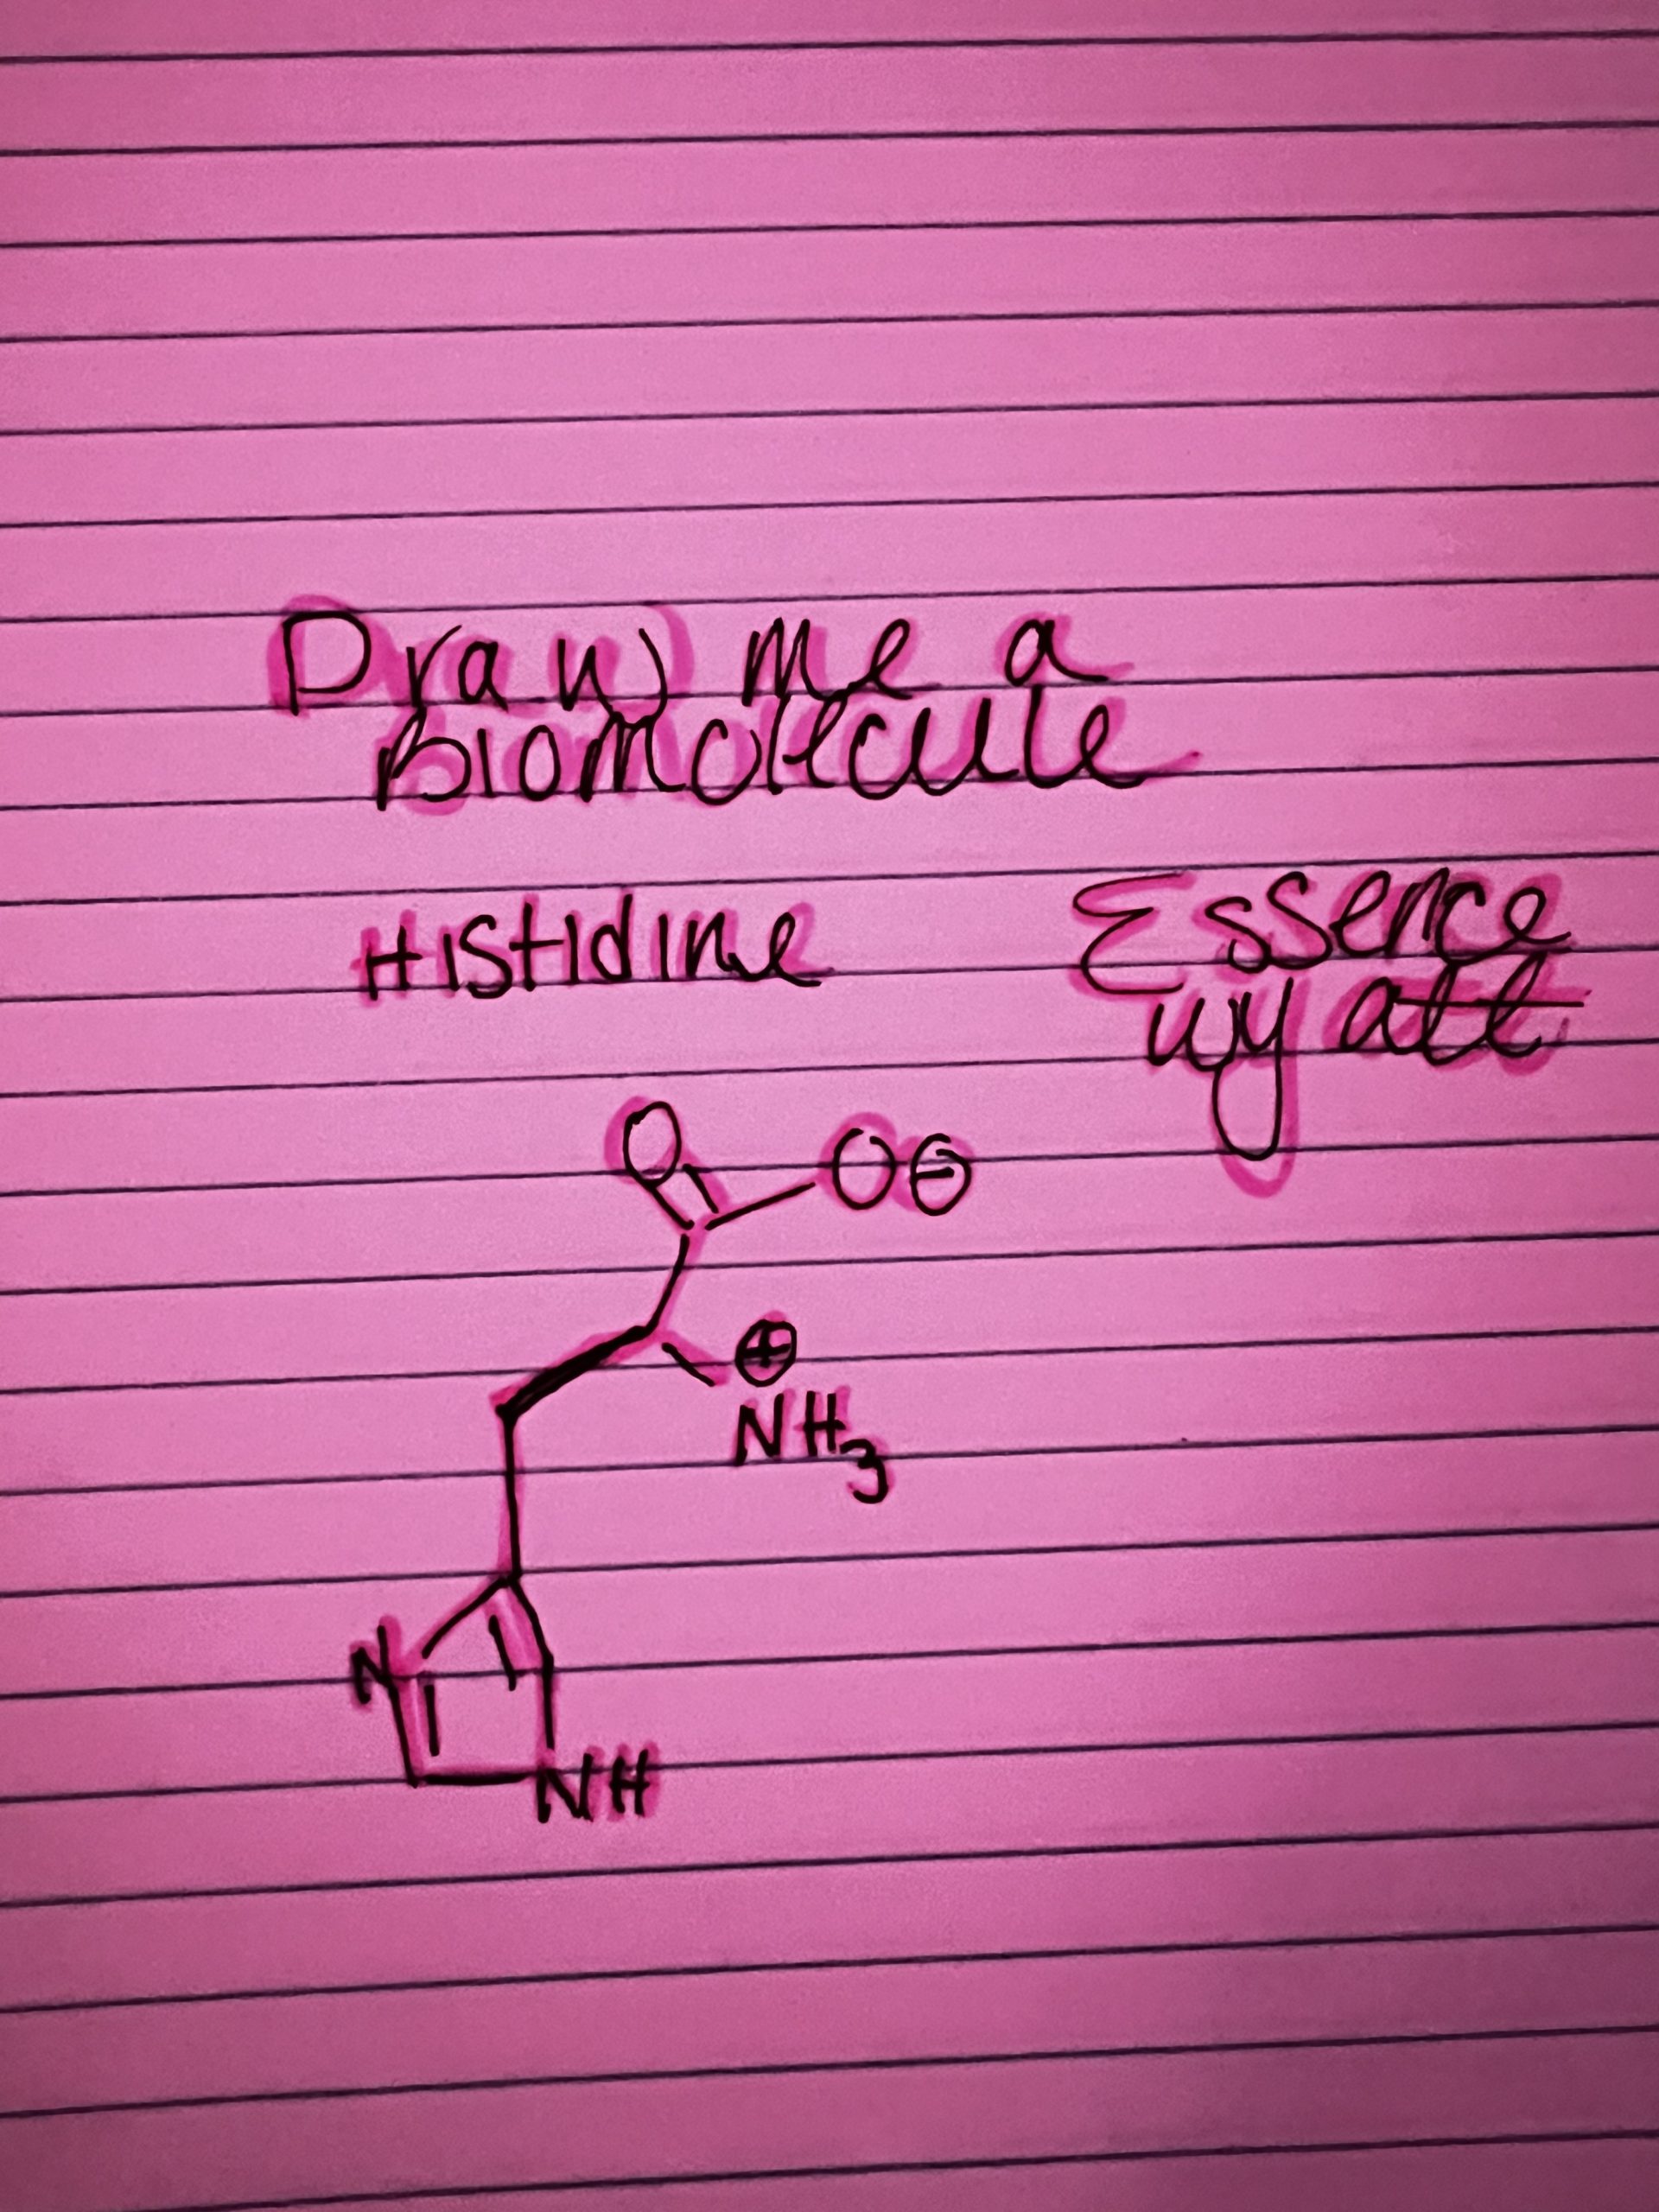 Draw me a
Biomolecule
Histidine
Essence
wyatt
O
O⊖
⊕
NH₃
N
NH